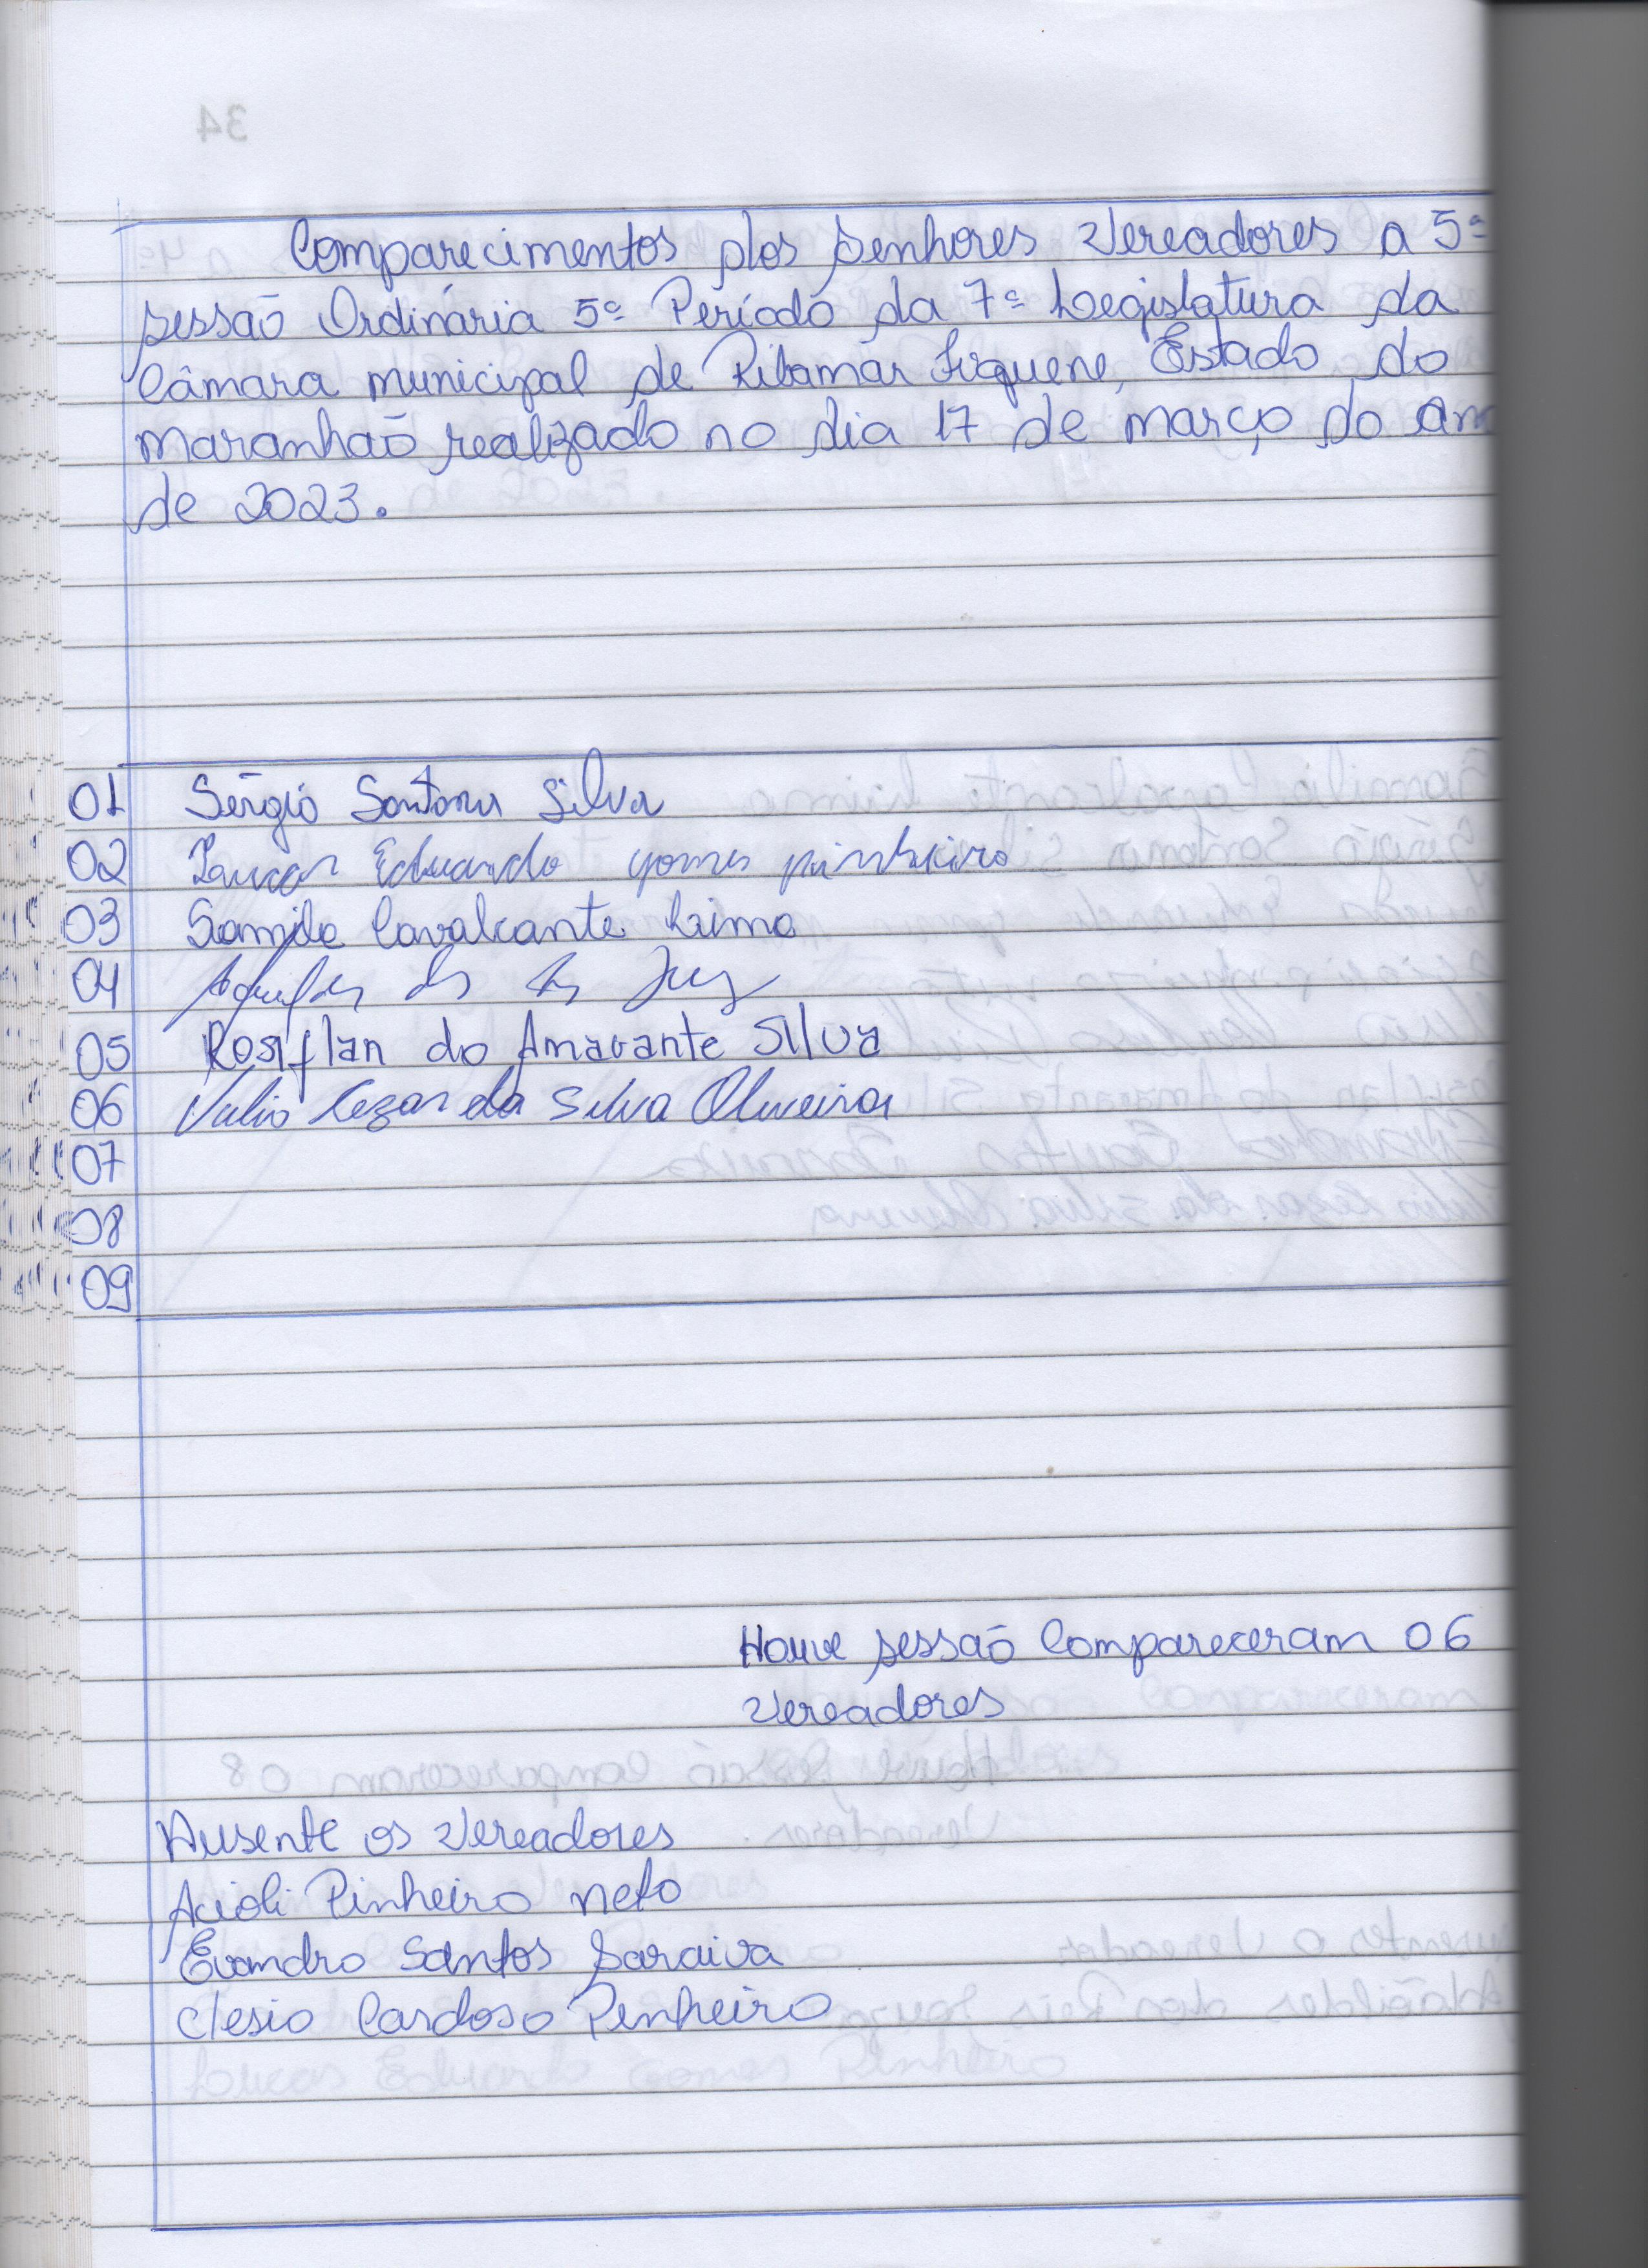 Comparecimentos dos Senhores Vereadores a 5ª
sessão Ordinária 5º Período da 7ª Legislatura da
Câmara municipal de Ribamar Fiquene, Estado do
maranhão realizado no dia 17 de março do an
de 2023.
01 Sérgio Santana Silva
02 Lucas Eduardo gomes pinheiro
03 Samila Cavalcante Lima
04
05 Rosiflan do Amarante Silva
06 Julio Cezar da Silva Oliveira
07
08
09
Houve sessão Compareceram 06
Vereadores
Ausente os Vereadores
Acioli Pinheiro neto
Evandro Santos Saraiva
Clesio Cardoso Pinheiro